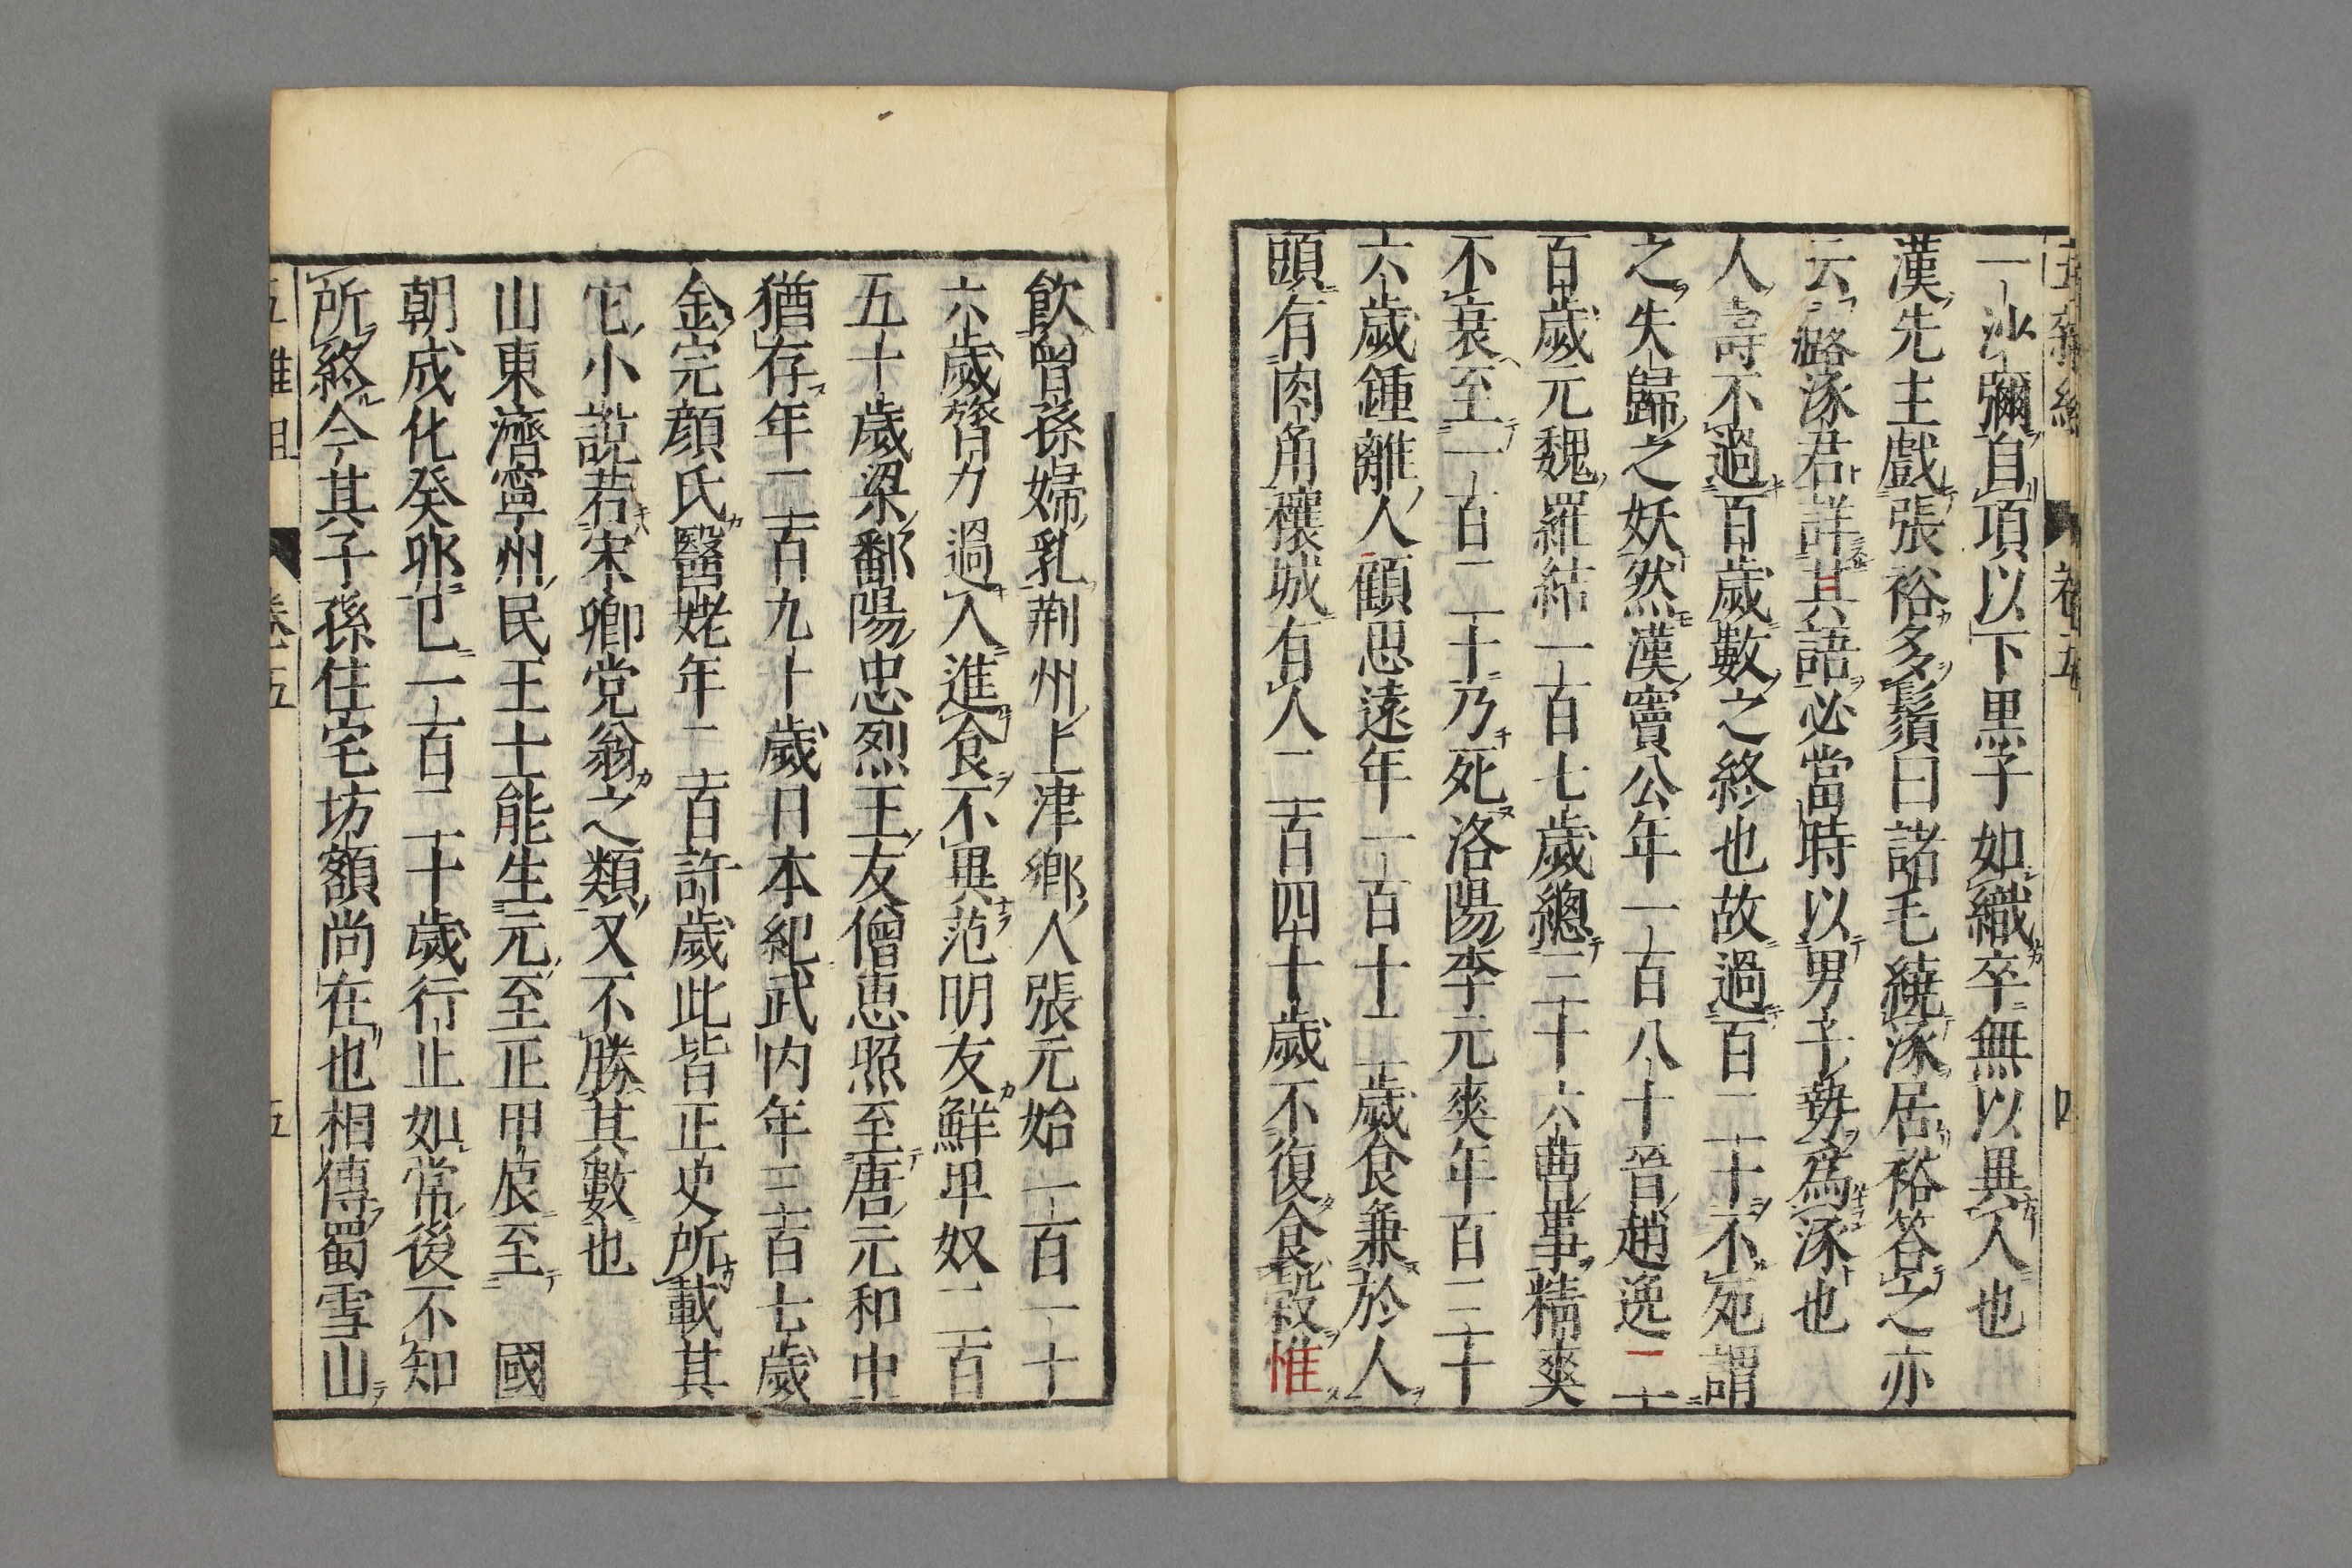 一沙彌自項以下黒子如織卒無以異人也
漢先主戲張裕多鬚曰諸毛繞涿居裕答之亦
云潞涿君詳其語必當時以男子勢爲涿也
人壽不過百歲數之終也故過百二十不死謂
之失歸之妖然漢竇公年一百八十晉趙逸二
百歲元魏羅結一百七歲總三十六曹事精爽
不衰至一百二十乃死洛陽李元爽年百三十
六歲鍾離人顧思遠年一百十二歲食兼於人
頭有肉角穰城有人二百四十歲不復食穀惟
飲曾孫婦乳荆州上津鄉人張元始一百一十
六歲膂力過人進食不異范明友鮮卑奴二百
五十歲梁鄱陽忠烈王友僧惠照至唐元和中
猶存年二百九十歲日本紀武内年三百七歲
金完顔氏醫姥年二百許歲此皆正史所載其
它小說若宋卿党翁之類又不勝其數也
山東濟寧州民王士能生元至正甲辰至 國
朝成化癸卯已一百二十歲行止如常後不知
所終今其子孫住宅坊額尚在也相傳蜀雪山
五雜俎 卷五 五